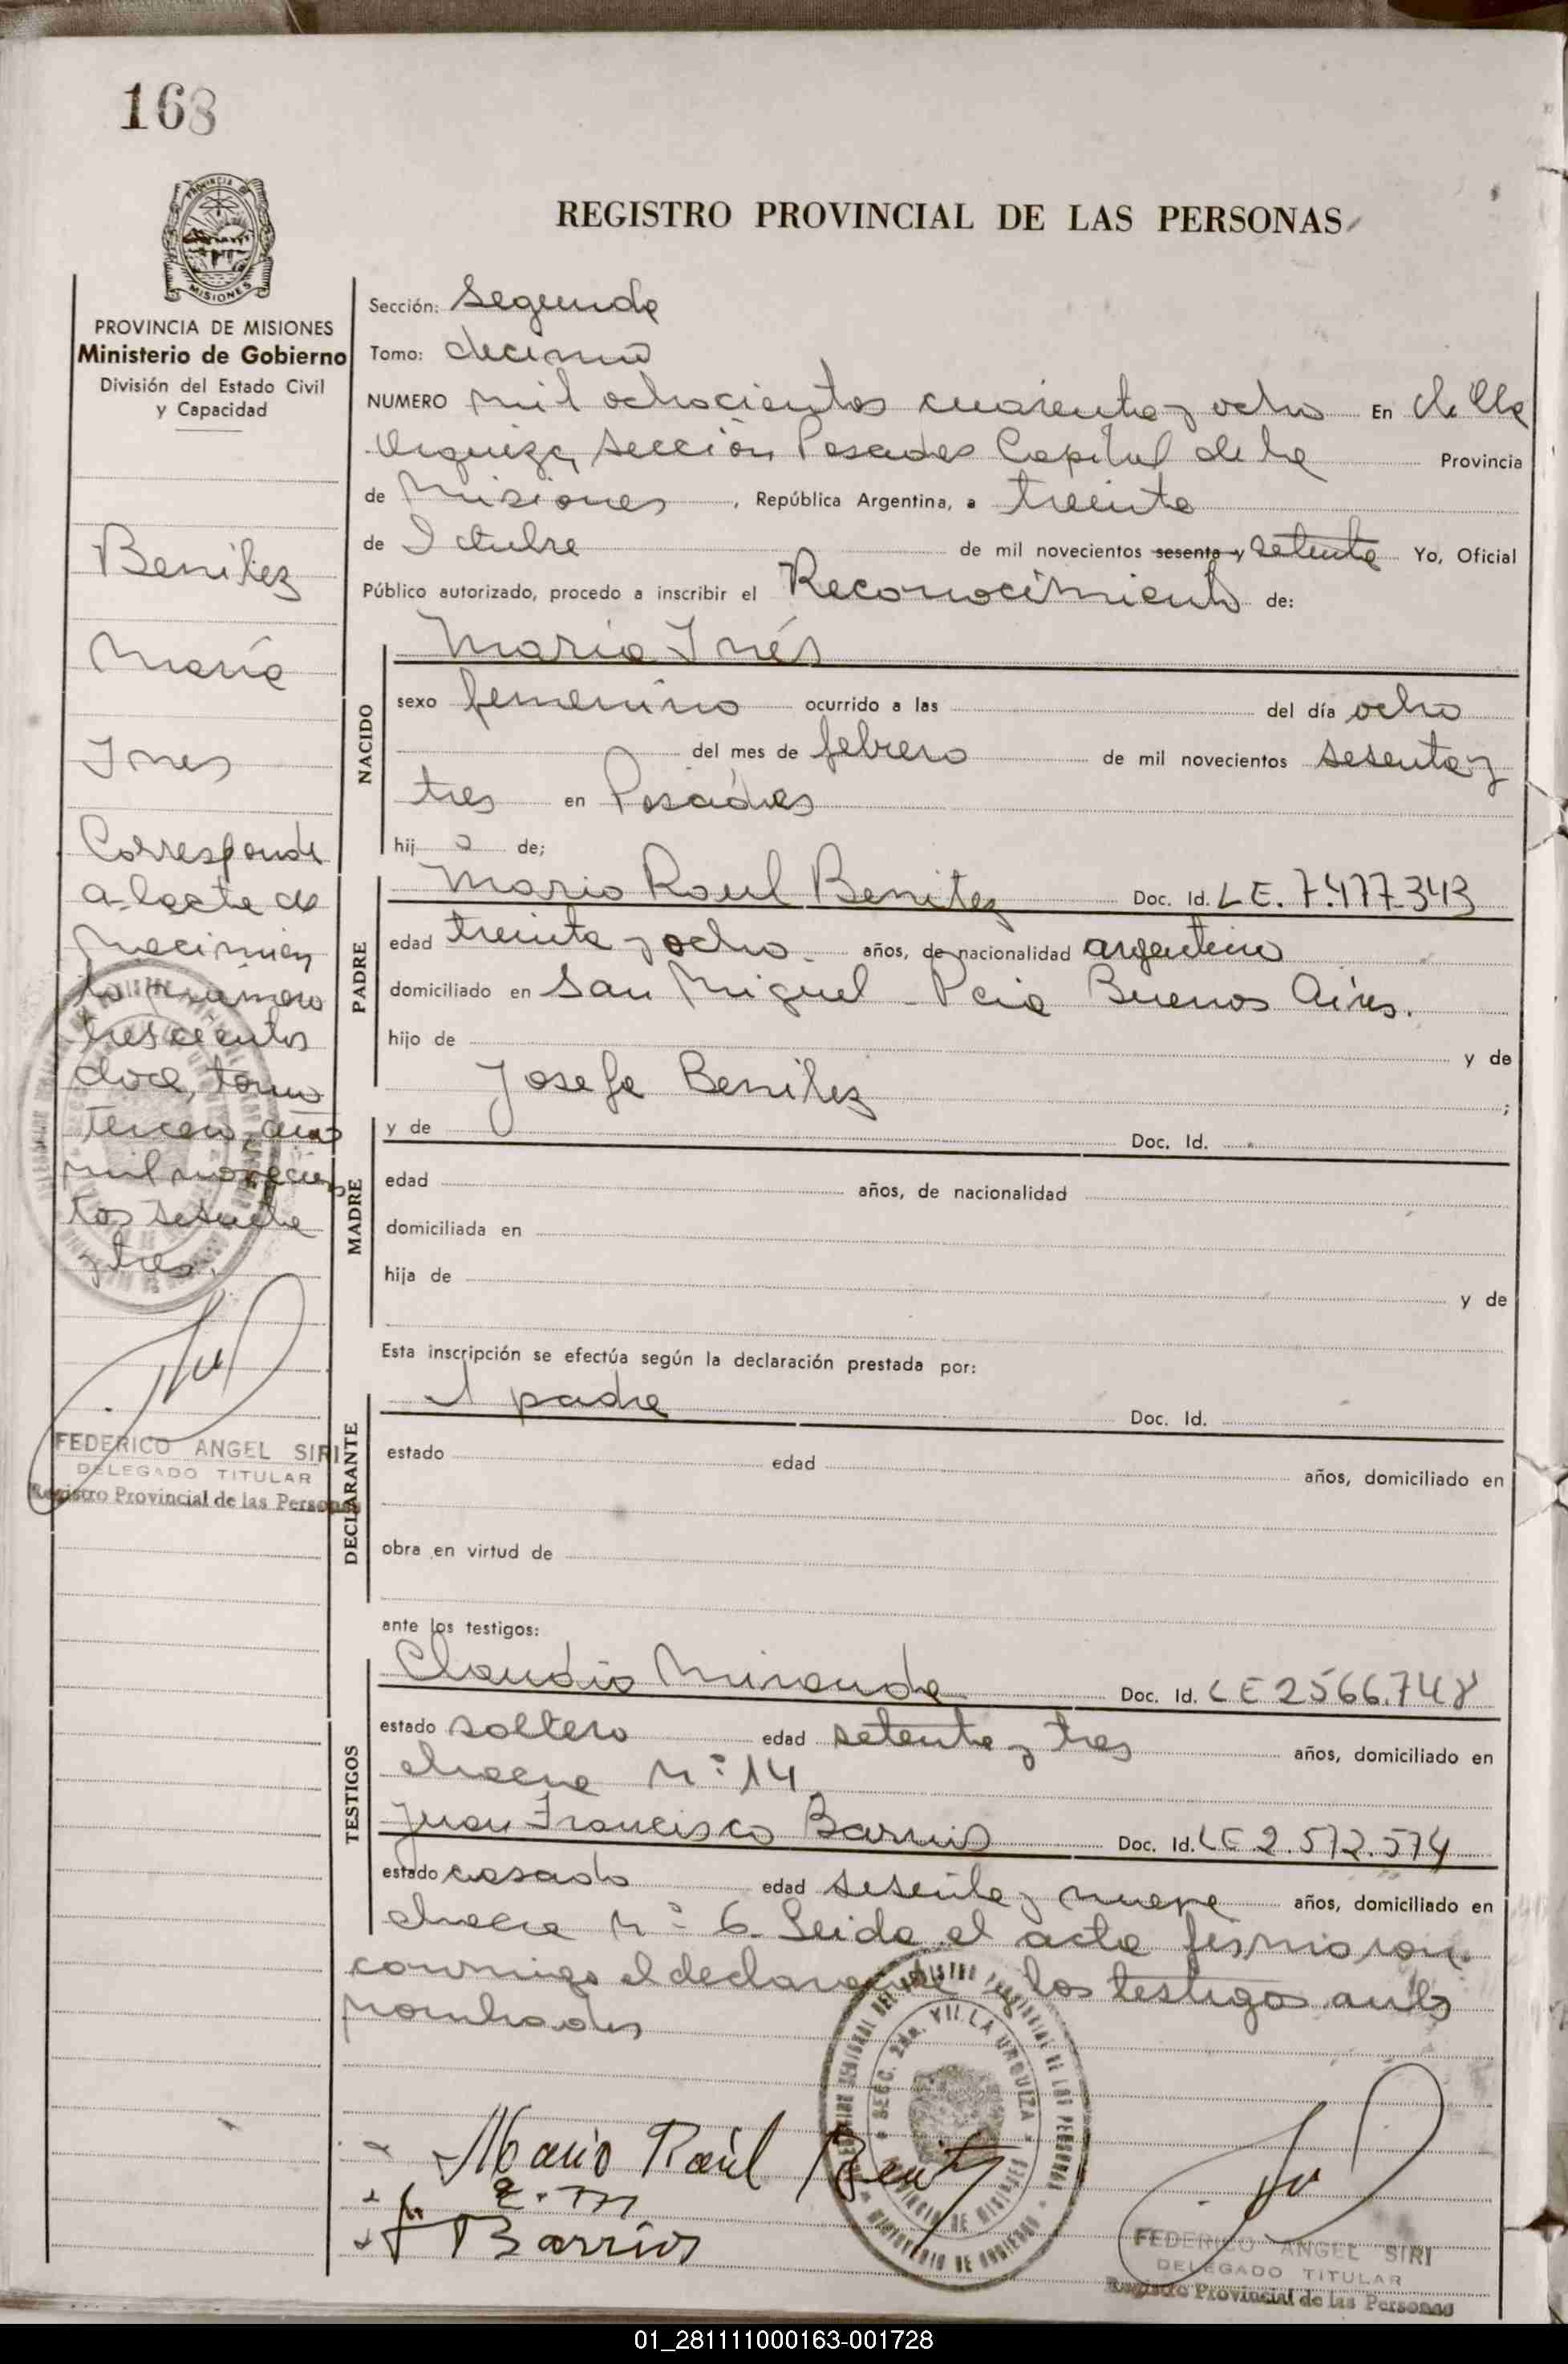 168
PROVINCIA DE
MISIONES
PROVINCIA DE MISIONES
Ministerio de Gobierno
División del Estado Civil
y Capacidad
Benitez
María
Ines
Corresponde
a lacta de
nacimien
to número
trescientos
doce, tomo
tercero, año
mil novecien
tos sesenta
y tres.
FEDERICO ANGEL SIRI
DELEGADO TITULAR
Registro Provincial de las Personas
REGISTRO PROVINCIAL DE LAS PERSONAS
Sección: Segunda
Tomo: decimo
NUMERO mil ochocientos cuarenta y ocho En Villa
Urquiza, sección Posadas Capital de la Provincia
de Misiones, República Argentina, a treinta
de Octubre de mil novecientos sesenta y setenta Yo, Oficial
Público autorizado, procedo a inscribir el Reconocimiento de:
NACIDO
María Inés
sexo femenino ocurrido a las del día ocho
del mes de febrero de mil novecientos sesenta y
tres en Posadas
hij a de;
PADRE
Mario Raul Benitez Doc. Id. L E. 7.477.343
edad treinta y ocho años, de nacionalidad argentino
domiciliado en San Miguel - Pcia Buenos Aires.
hijo de y de
Josefa Benitez ;
MADRE
y de Doc. Id.
edad años, de nacionalidad
domiciliada en
hija de y de
Esta inscripción se efectúa según la declaración prestada por:
DECLARANTE
el padre Doc. Id.
estado edad años, domiciliado en
obra en virtud de
ante los testigos:
TESTIGOS
Claudio Miranda Doc. Id. L E 2566.748
estado soltero edad setenta y tres años, domiciliado en
chacra Nº 14
Juan Francisco Barrios Doc. Id. L E 2.572.574
estado casado edad sesenta y nueve años, domiciliado en
chacra Nº 6. Leida el acta firmaron
conmigo el declarante y los testigos antes
nombrados
Mario Raúl Benitez
Barrios
SECC. 2da. VILLA URQUIZA
PROVINCIA DE MISIONES
MINISTERIO DE GOBIERNO
FEDERICO ANGEL SIRI
DELEGADO TITULAR
Registro Provincial de las Personas
01_281111000163-001728